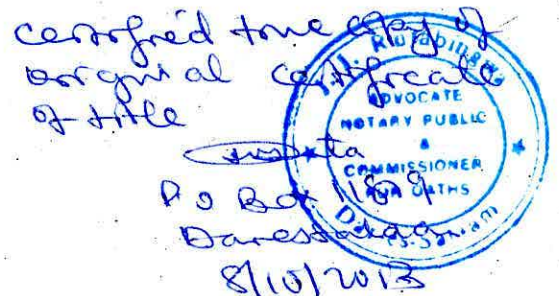 certified true copy of
original certificate
of title
P O Box 1189
Daressalaam
8/10/2013
Rutabingwa
ADVOCATE
NOTARY PUBLIC
&
COMMISSIONER
FOR OATHS
Dar es-Salaam